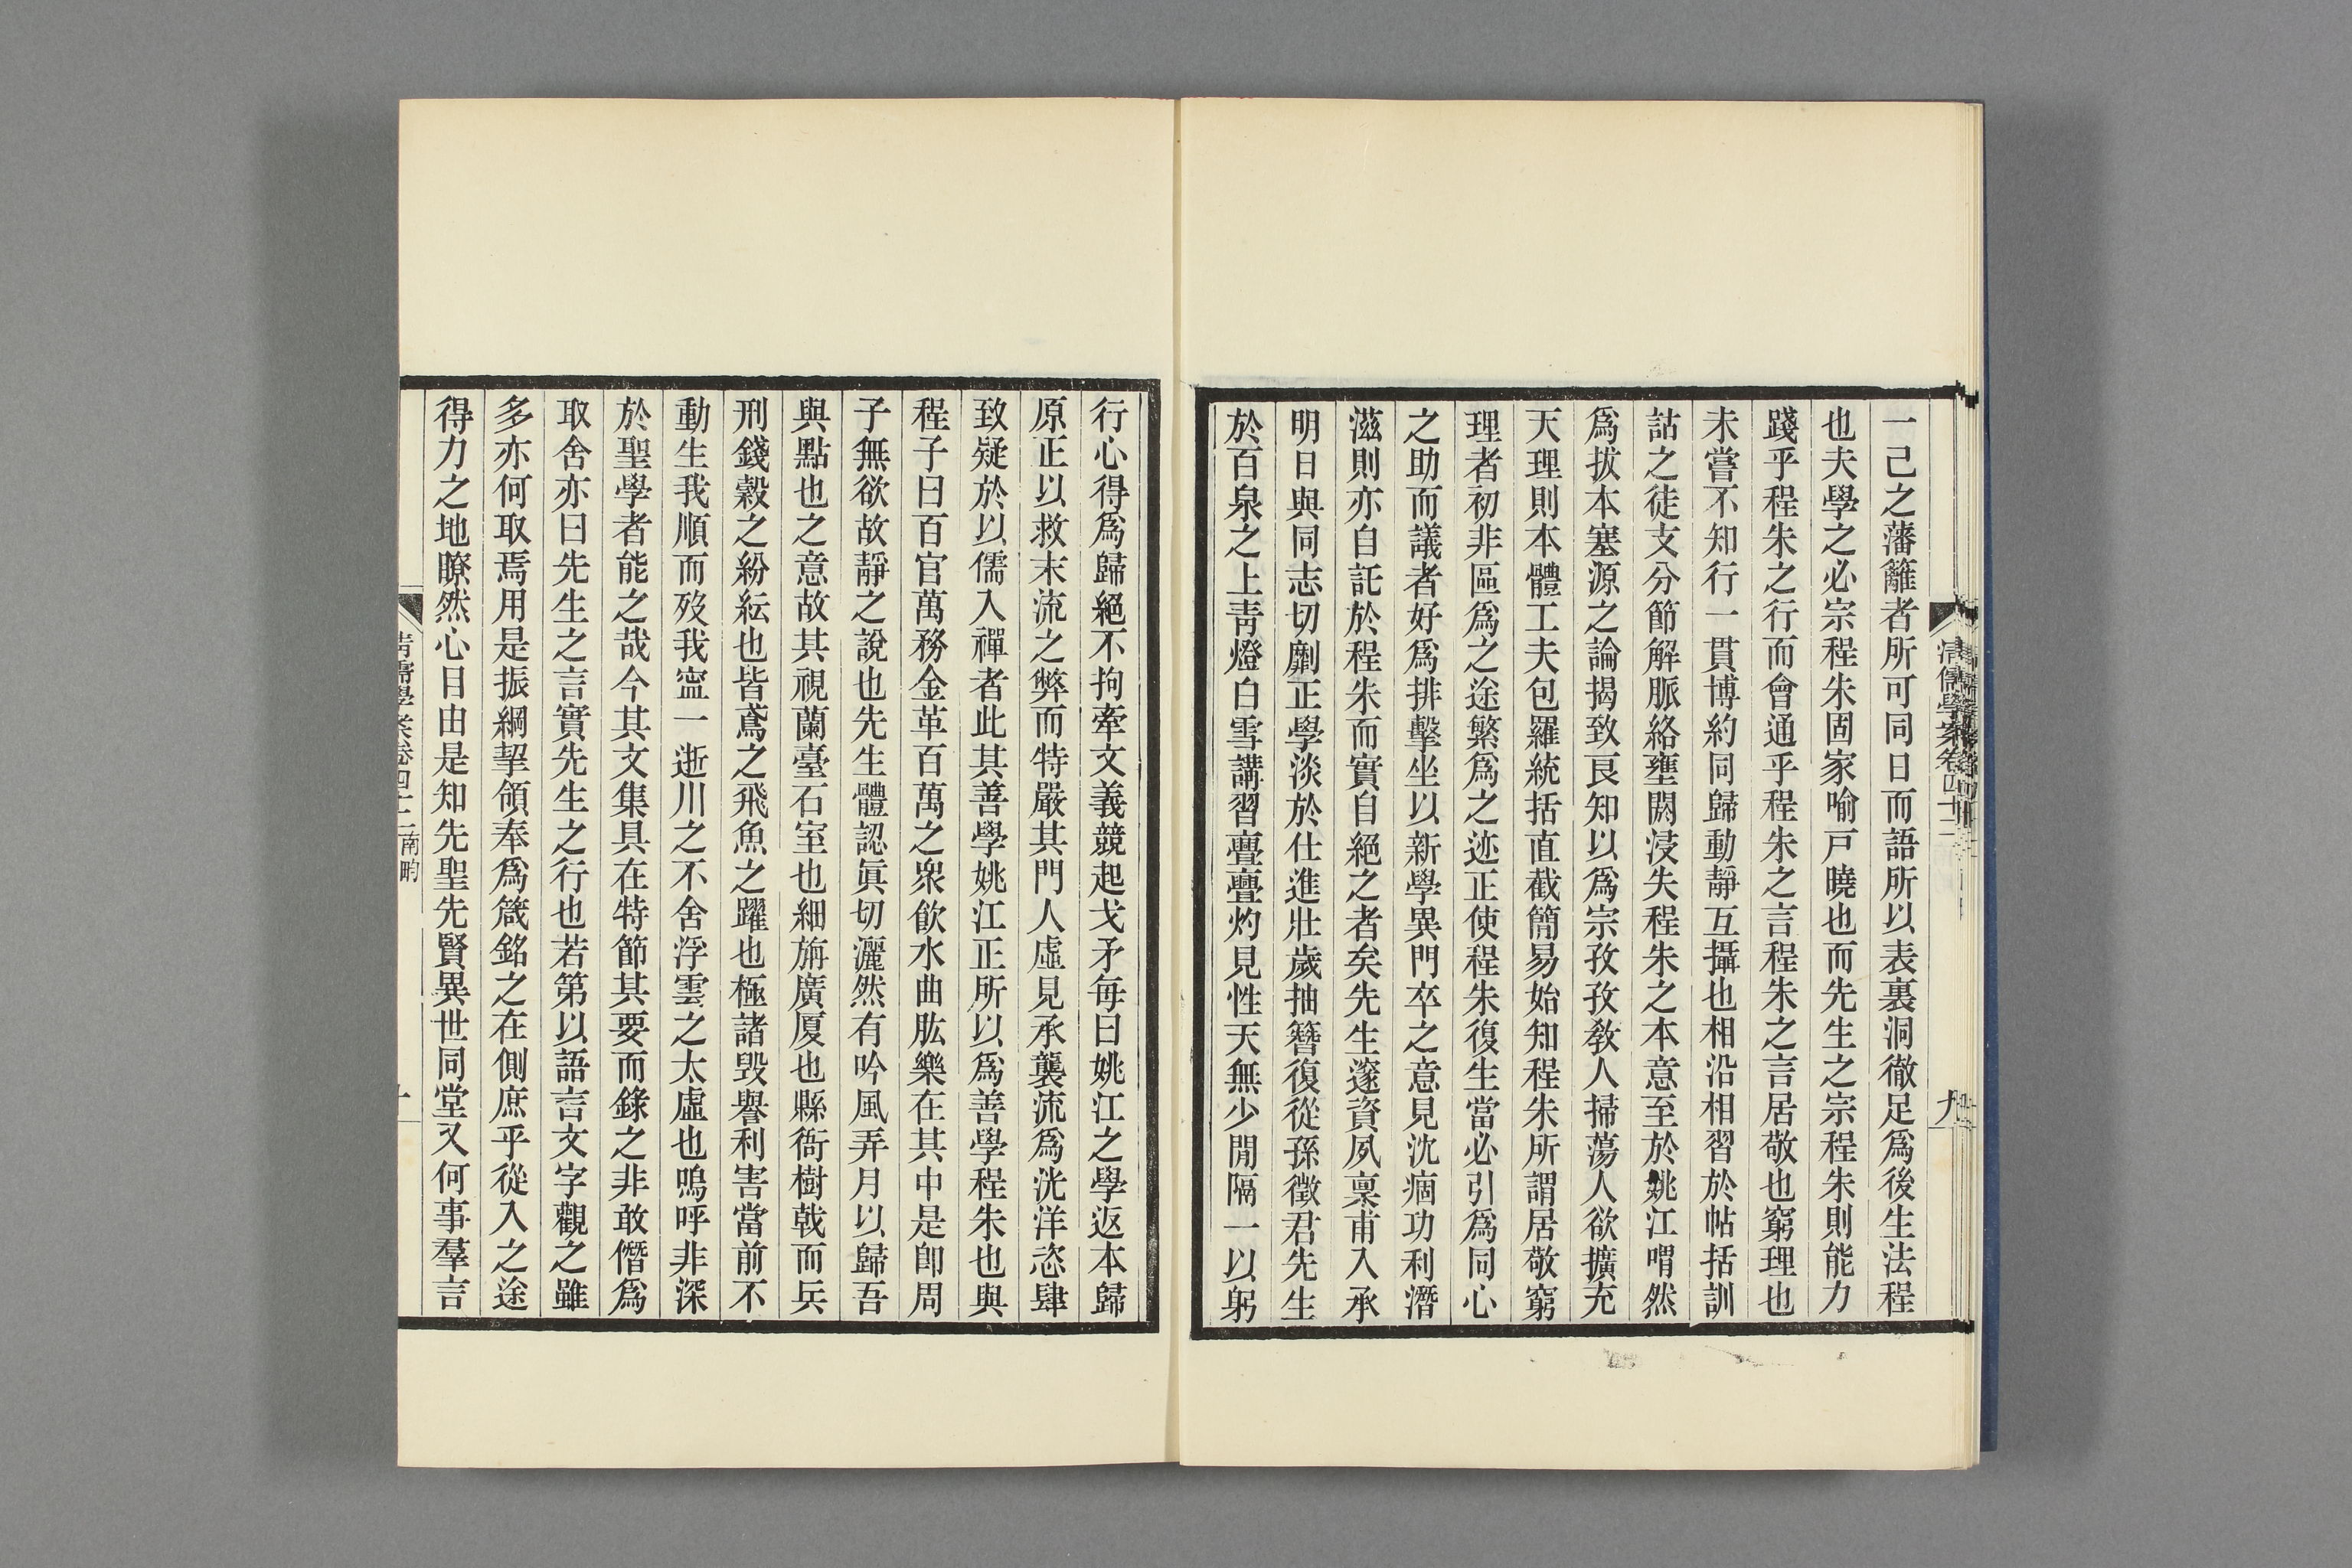 一己之藩籬者所可同日而語所以表裏洞徹足爲後生法程
也夫學之必宗程朱固家喻戸曉也而先生之宗程朱則能力
踐乎程朱之行而會通乎程朱之言程朱之言居敬也窮理也
未嘗不知行一貫博約同歸動靜互攝也相沿相習於帖括訓
詁之徒支分節解脈絡壅閼寖失程朱之本意至於姚江喟然
爲拔本塞源之論揭致良知以爲宗孜孜教人掃蕩人欲擴充
天理則本體工夫包羅統括直截簡易始知程朱所謂居敬窮
理者初非區爲之途繁爲之迹正使程朱復生當必引爲同心
之助而議者好爲排擊坐以新學異門卒之意見沈痼功利潛
滋則亦自託於程朱而實自絕之者矣先生邃資夙稟甫入承
明日與同志切劘正學淡於仕進壯歲抽簪復從孫徵君先生
於百泉之上靑燈白雪講習亹亹灼見性天無少閒隔一以躬
清儒學案卷四十二
九
行心得爲歸絕不拘牽文義競起戈矛每曰姚江之學返本歸
原正以救末流之弊而特嚴其門人虛見承襲流爲洸洋恣肆
致疑於以儒入禪者此其善學姚江正所以爲善學程朱也與
程子曰百官萬務金革百萬之衆飮水曲肱樂在其中是卽周
子無欲故靜之說也先生體認眞切灑然有吟風弄月以歸吾
與點也之意故其視蘭臺石室也細旃廣厦也縣衙樹戟而兵
刑錢穀之紛紜也皆鳶之飛魚之躍也極諸毀譽利害當前不
動生我順而歿我寍一逝川之不舍浮雲之太虛也嗚呼非深
於聖學者能之哉今其文集具在特節其要而錄之非敢僭爲
取舍亦曰先生之言實先生之行也若第以語言文字觀之雖
多亦何取焉用是振綱挈領奉爲箴銘之在側庶乎從入之途
得力之地瞭然心目由是知先聖先賢異世同堂又何事羣言
清儒學案卷四十二 南畇
十